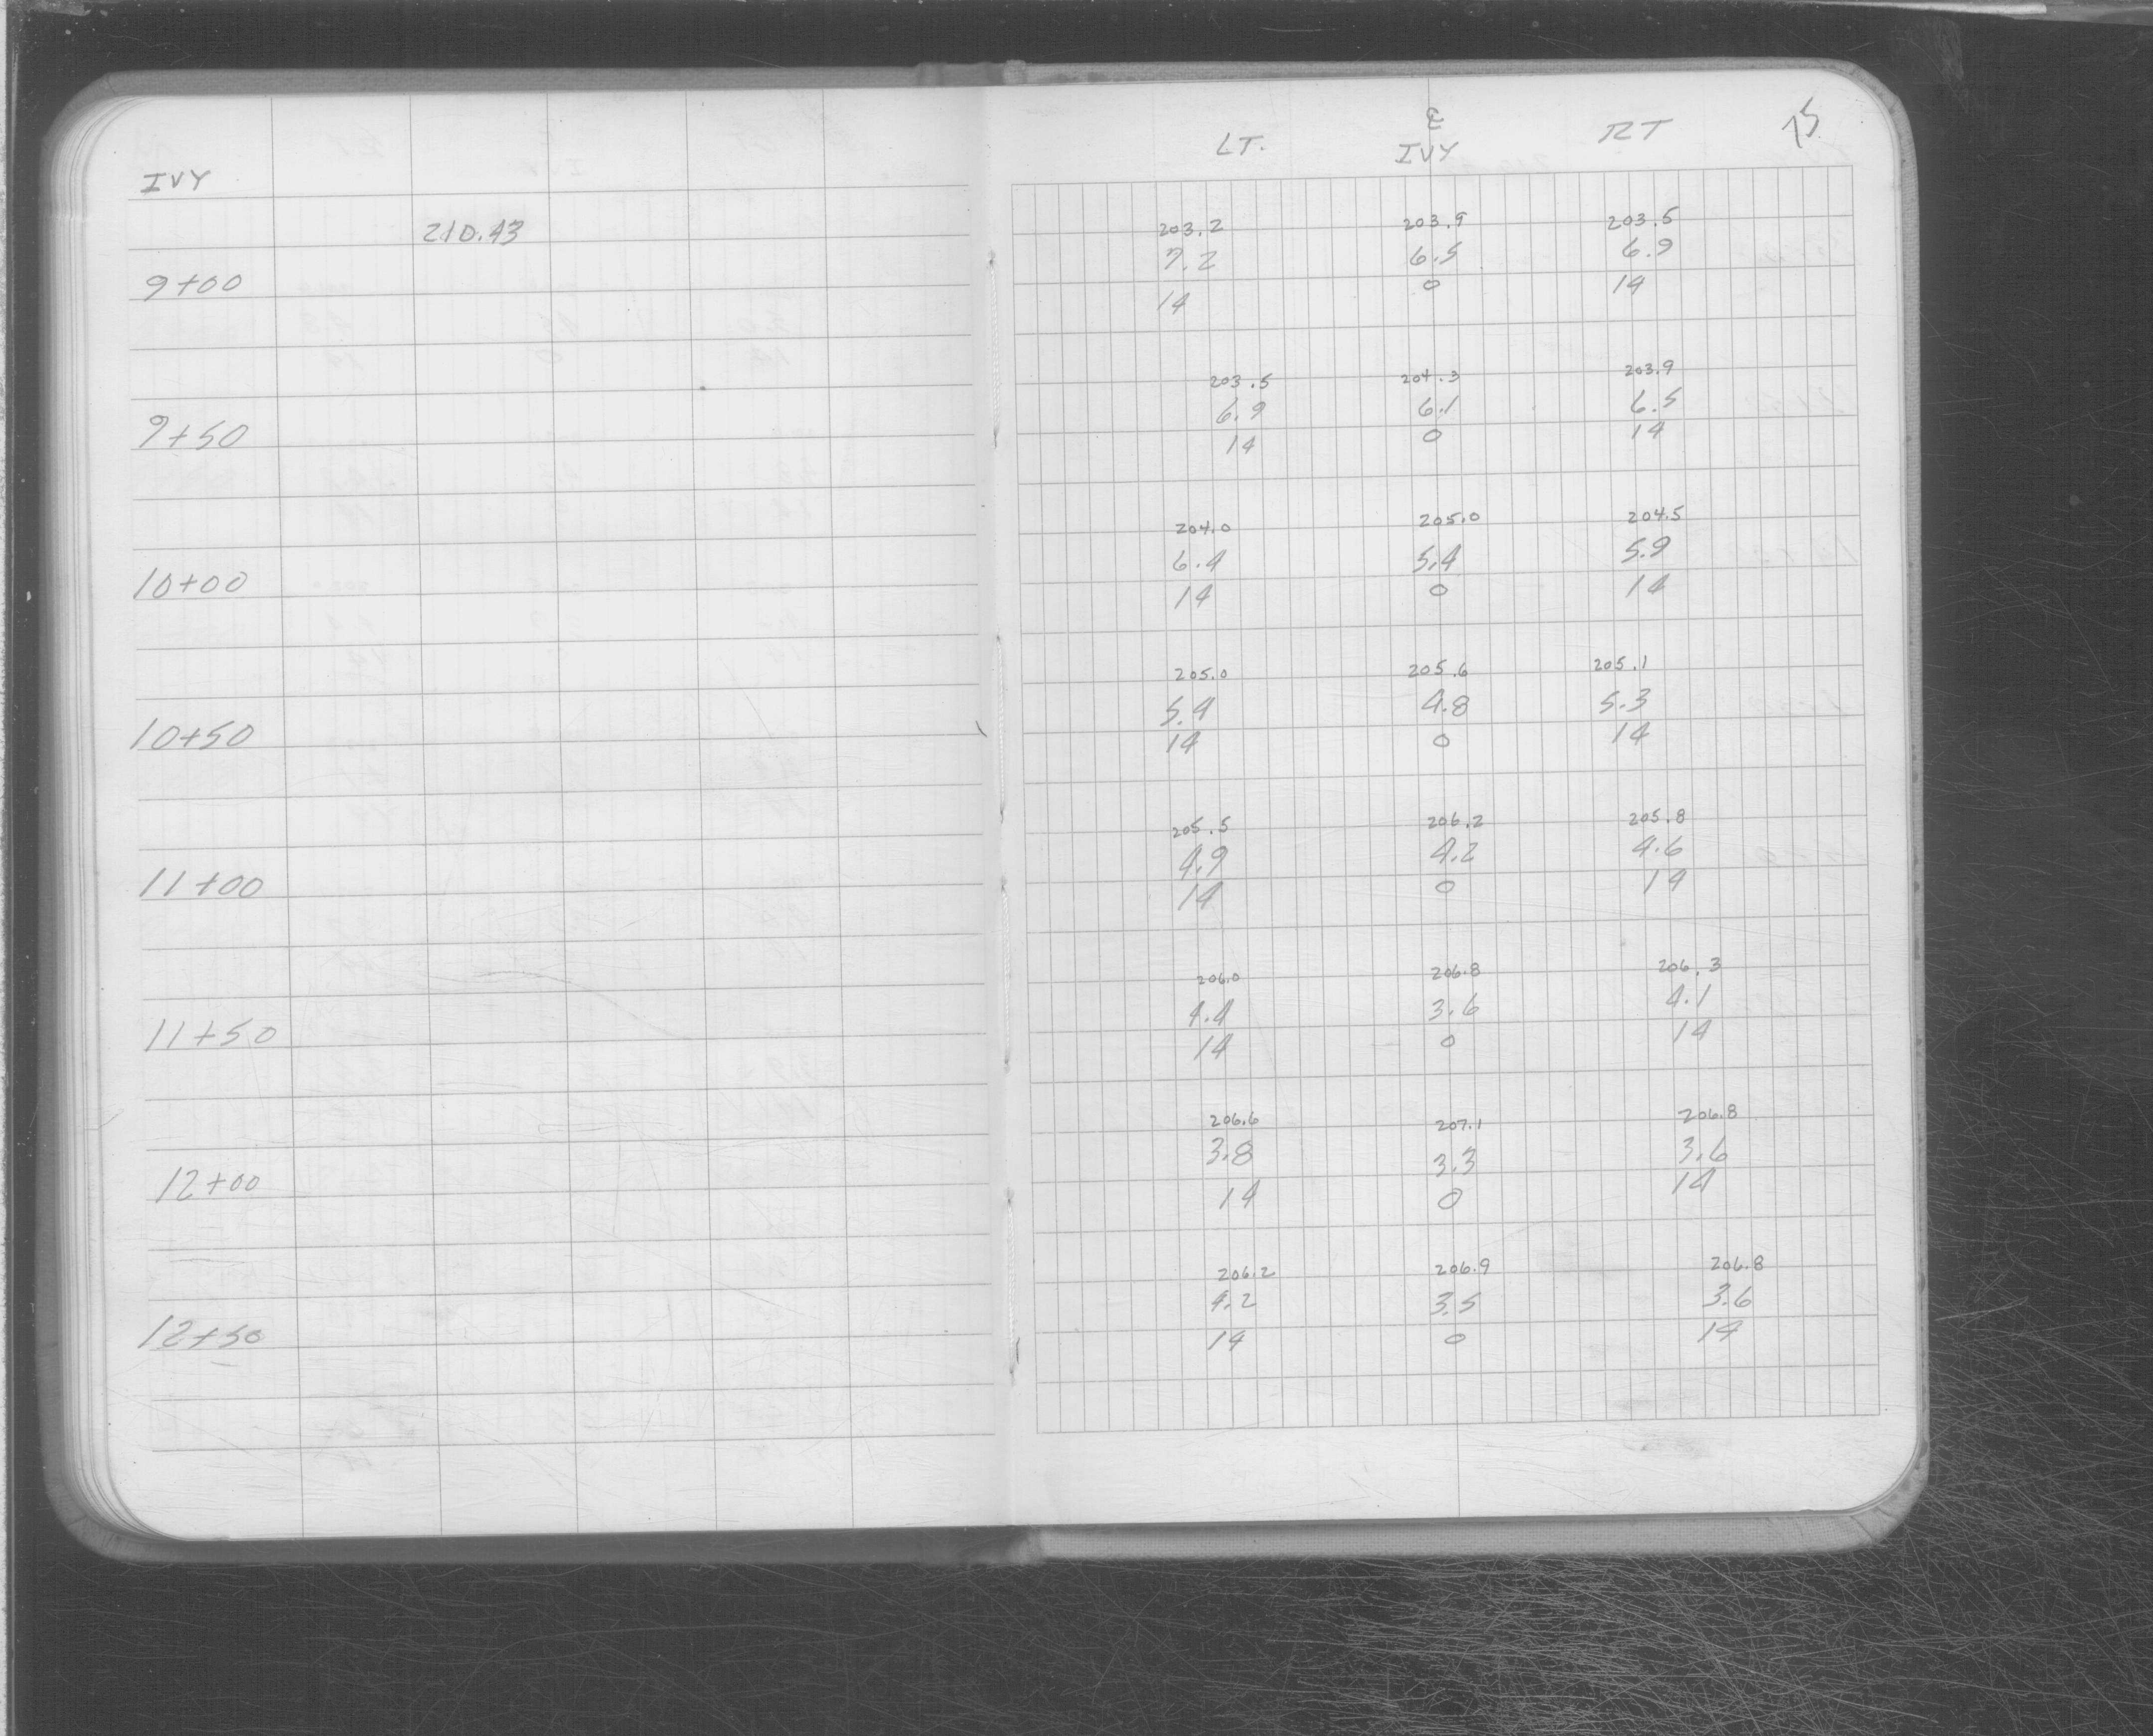 IVY
210.43
9+00
9+50
10+00
10+50
11+00
11+50
12+00
12+50
75
LT. ℄ RT
IVY
203.2 203.9 203.5
7.2 6.5 6.9
14 0 14
203.5 204.3 203.9
6.9 6.1 6.5
14 0 14
204.0 205.0 204.5
6.4 5.4 5.9
14 0 14
205.0 205.6 205.1
5.4 4.8 5.3
14 0 14
205.5 206.2 205.8
4.9 4.2 4.6
14 0 14
206.0 206.8 206.3
4.4 3.6 4.1
14 0 14
206.6 207.1 206.8
3.8 3.3 3.6
14 0 14
206.2 206.9 206.8
4.2 3.5 3.6
14 0 14